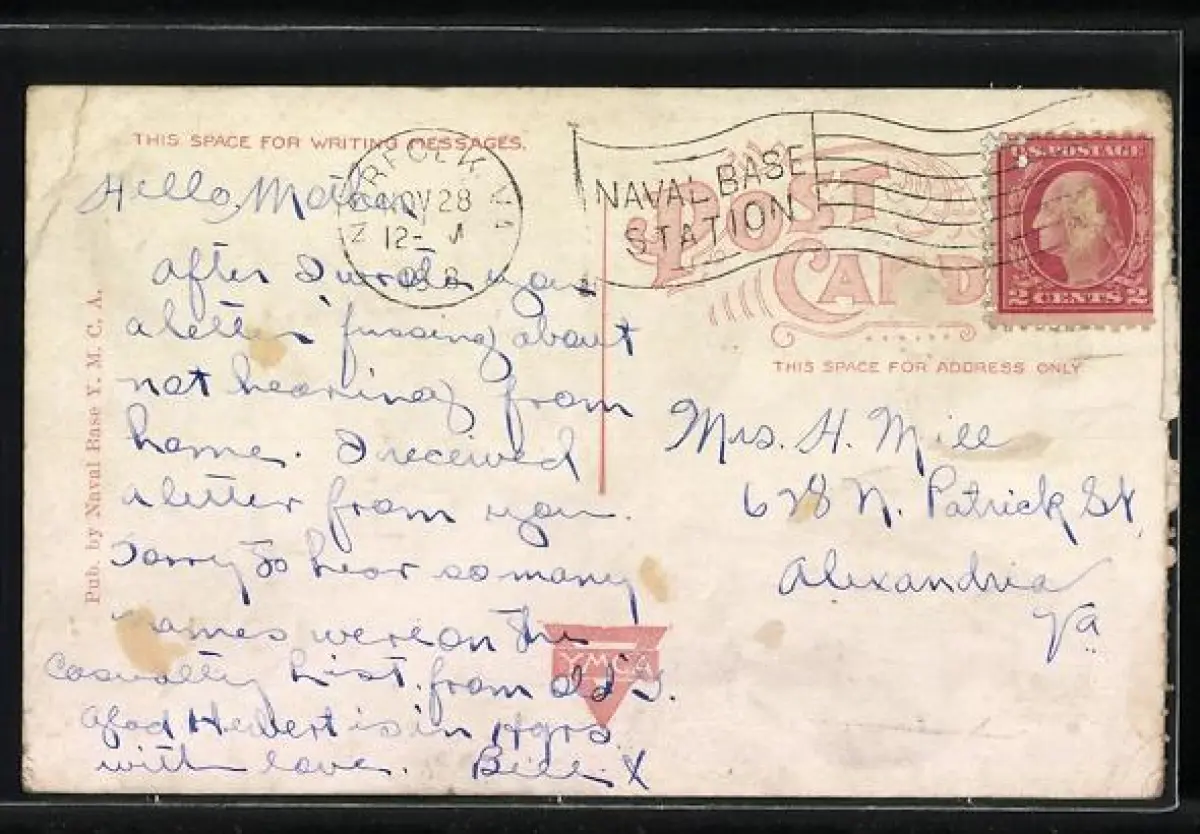 THIS SPACE FOR WRITING MESSAGES.
NORFOLK VA
NOV 28
12-
NAVAL BASE
STATION
POST
CARD
U.S. POSTAGE
2 CENTS 2
THIS SPACE FOR ADDRESS ONLY
Pub. by Naval Base Y. M. C. A.
Hello, Mother
after I wrote you
a letter fussing about
not hearing from
home. I received
a letter from you.
Sorry to hear so many
names were on the
Casualty List. from
Glad is in Hqrs
with love. Bill X
YMCA
Mrs. H. Mill
628 N. Patrick St
Alexandria
Va